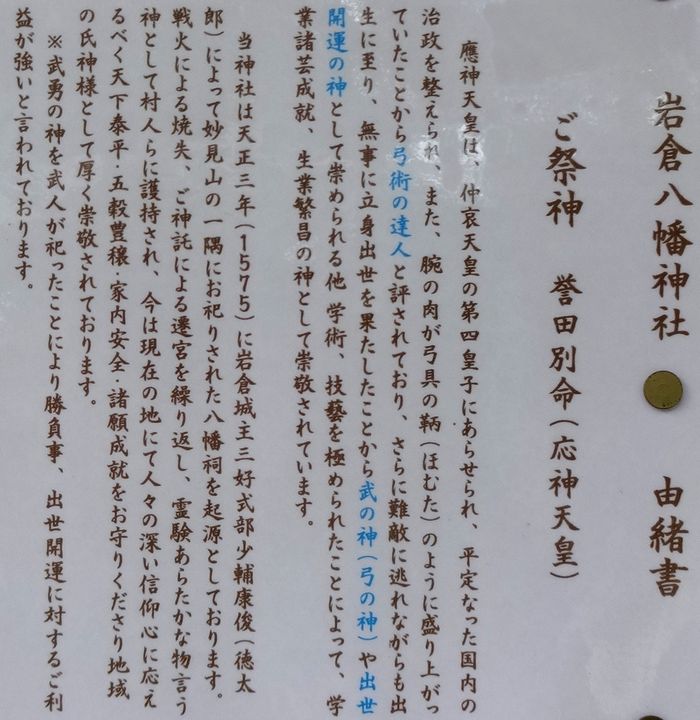 岩倉八幡神社　由緒書
ご祭神　誉田別命(応神天皇)
應神天皇は、仲哀天皇の第四皇子にあらせられ、平定なった国内の
治政を整えられ、また、腕の肉が弓具の鞆(ほむた)のように盛り上がっ
ていたことから弓術の達人と評されており、さらに難敵に逃れながらも出
生に至り、無事に立身出世を果たしたことから武の神(弓の神)や出世
開運の神として崇められる他 学術、技藝を極められたことによって、学
業諸芸成就、生業繁昌の神として崇敬されています。
当神社は天正三年(1575)に岩倉城主三好式部少輔康俊(徳太
郎)によって妙見山の一隅にお祀りされた八幡祠を起源としております。
戦火による焼失、ご神託による遷宮を繰り返し、霊験あらたかな物言う
神として村人らに護持され、今は現在の地にて人々の深い信仰心に応え
るべく天下泰平·五穀豊穣·家内安全·諸願成就をお守りくださり地域
の氏神様として厚く崇敬されております。
※武勇の神を武人が祀ったことにより勝負事、出世開運に対するご利
益が強いと言われております。